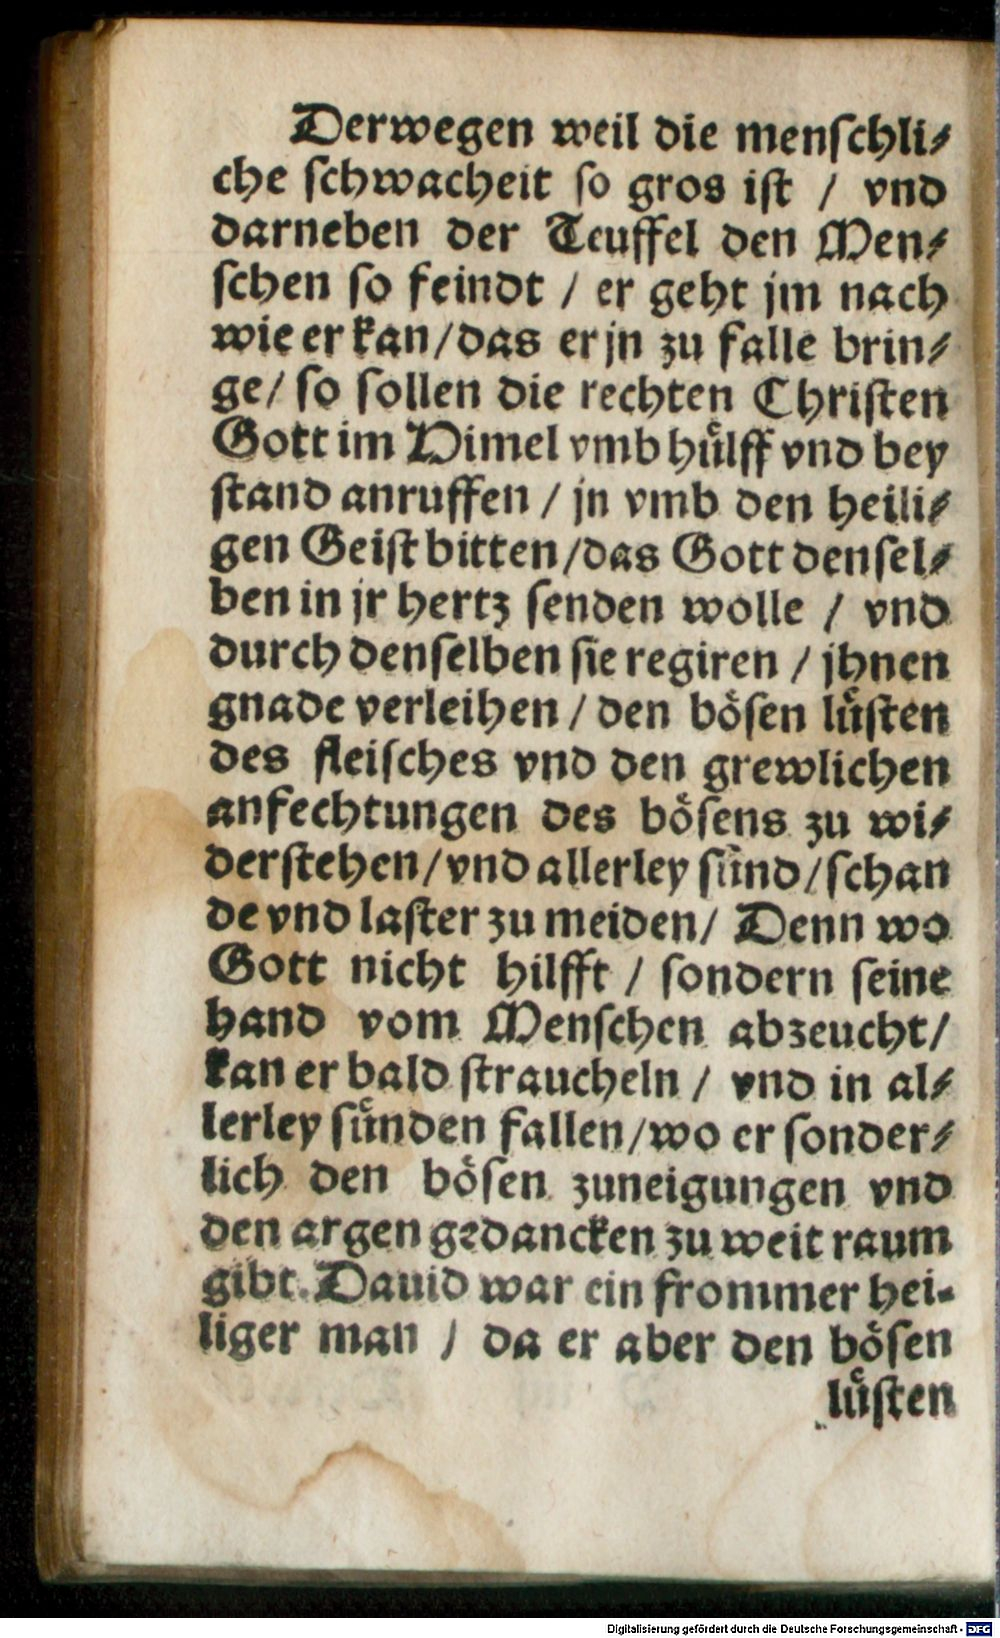 Derwegen weil die menſchli⸗
che ſchwacheit ſo gros iſt / vnd
darneben der Teuffel den Men⸗
ſchen ſo feindt / er geht jm nach
wie er kan / das er jn zu falle brin⸗
ge / ſo ſollen die rechten Chriſten
Gott im Himel vmb huͤlff vnd bey
ſtand anruffen / jn vmb den heili⸗
gen Geiſt bitten / das Gott denſel⸗
ben in jr hertz ſenden wolle / vnd
durch denſelben ſie regiren / jhnen
gnade verleihen / den boͤſen luͤſten
des fleiſches vnd den grewlichen
anfechtungen des boͤſens zu wi⸗
derſtehen / vnd allerley ſuͤnd / ſchan
de vnd laſter zu meiden / Denn wo
Gott nicht hilfft / ſondern ſeine
hand vom Menſchen abzeucht /
kan er bald ſtraucheln / vnd in al⸗
lerley ſuͤnden fallen / wo er ſonder⸗
lich den boͤſen zuneigungen vnd
den argen gedancken zu weit raum
gibt. Dauid war ein frommer hei-
liger man / da er aber den boͤſen
luͤſten
Digitalisierung gefördert durch die Deutsche Forschungsgemeinschaft - DFG